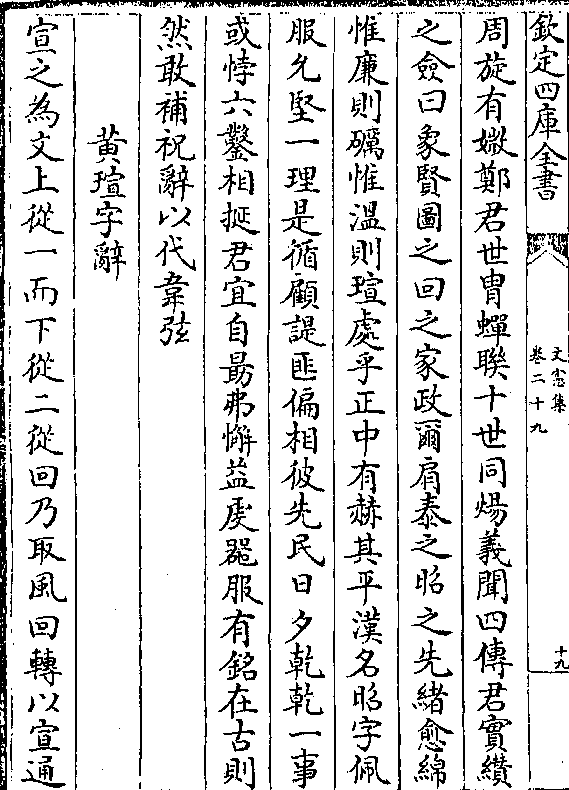 欽定四庫全書
文憲集
卷二十九
十九
周旋有媺鄭君世胄蟬聯十世同煬義聞四傳君實纉
之僉曰象賢圖之回之家政爾肩泰之昭之先緒愈綿
惟廉則礪惟溫則瑄處乎正中有赫其平漢名昭字佩
服允堅一理是循顧諟匪偏相彼先民日夕乾乾一事
或悖六鑿相挻君宜自勗弗懈益虔器服有銘在古則
然敢補祝辭以代韋弦
黃瑄字辭
宣之為文上從一而下從二從回乃取風回轉以宣通